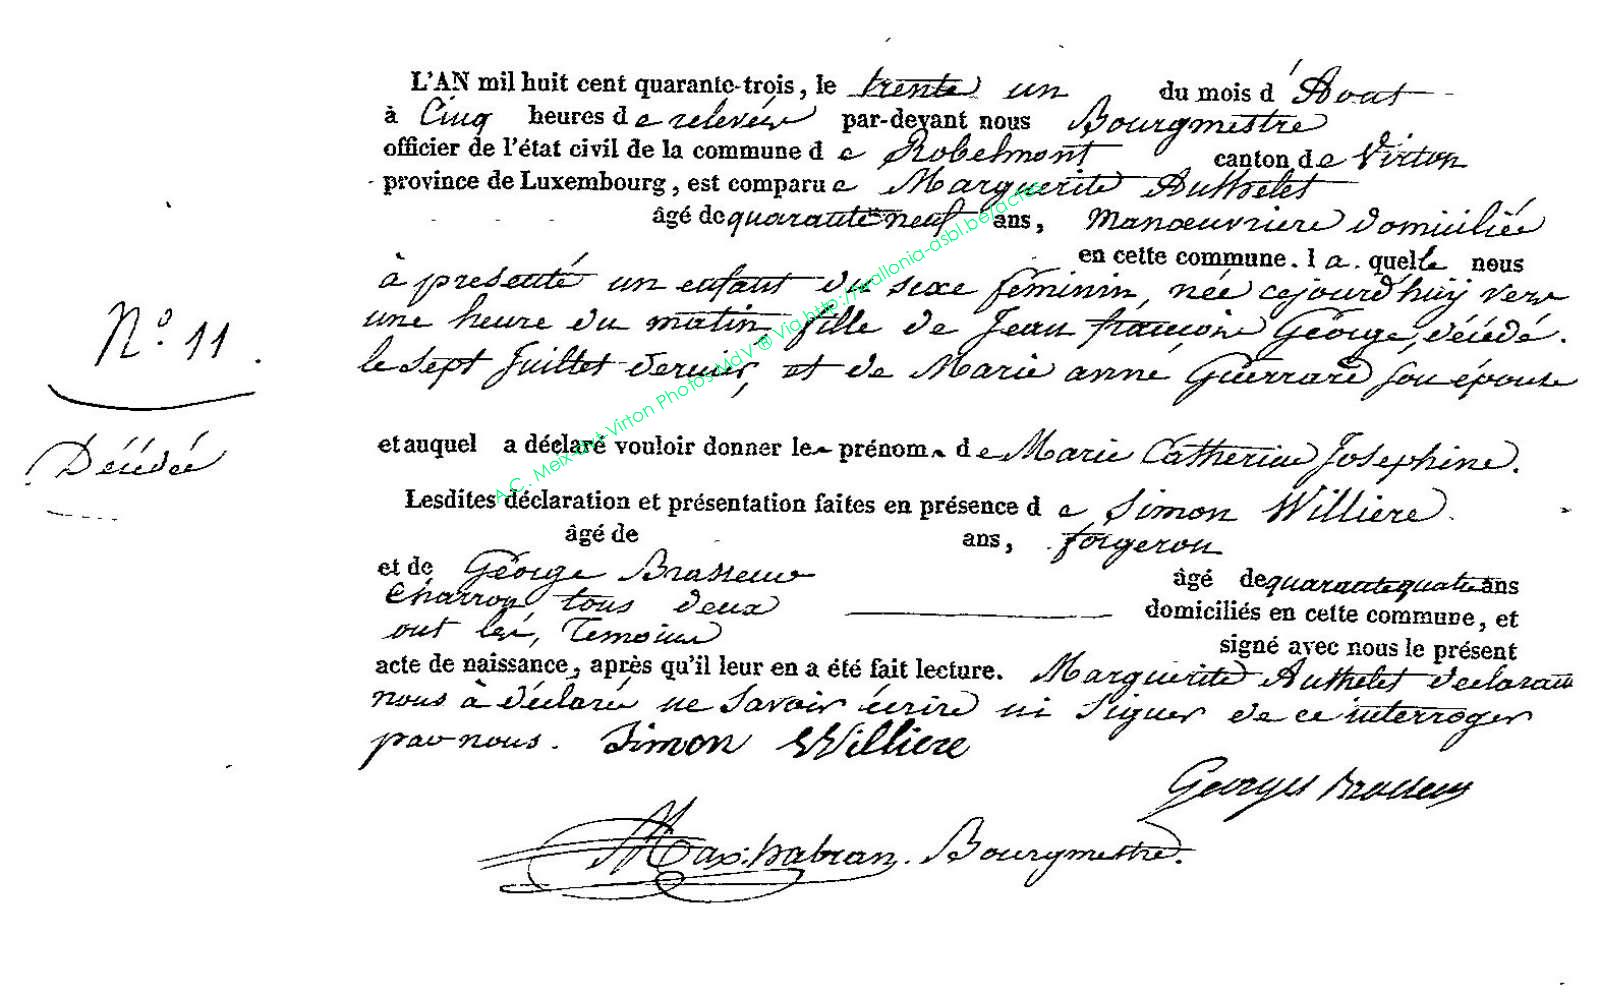 L'AN mil huit cent quarante-trois, le trente un du mois d'Aout
à Cinq heures de relevée par-devant nous Bourgmestre
officier de l'état civil de la commune de Robelmont canton de Virton
province de Luxembourg, est comparue Marguerite Authelet
âgé de quarante neuf ans, Manœuvriere domiciliée
en cette commune. la quelle nous
à presenté un enfant du sexe féminin, née cejourd'huy vers
une heure du matin, fille de Jean françois George, décédé.
le sept Juillet dernier, et de Marie anne Guerrard son épouse
N.o 11.
et auquel a déclaré vouloir donner le prénom de Marie Catherine Josephine.
Décédée
Lesdites déclaration et présentation faites en présence de Simon Williere.
âgé de ans, forgeron
et de George Brasseur âgé de quarante quatre ans
Charron, tous deux domiciliés en cette commune, et
ont Témoins signé avec nous le présent
acte de naissance, après qu'il leur en a été fait lecture. Marguerite Authelet declarante
nous à déclaré ne Savoir écrire ni Signer de ce interroger
par nous. Simon Williere
Georges Brasseur
Max: habran. Bourgmestre.
A.C. Meix-dvt-Virton Photos MdV ® Via http://wallonia-asbl.be/actes